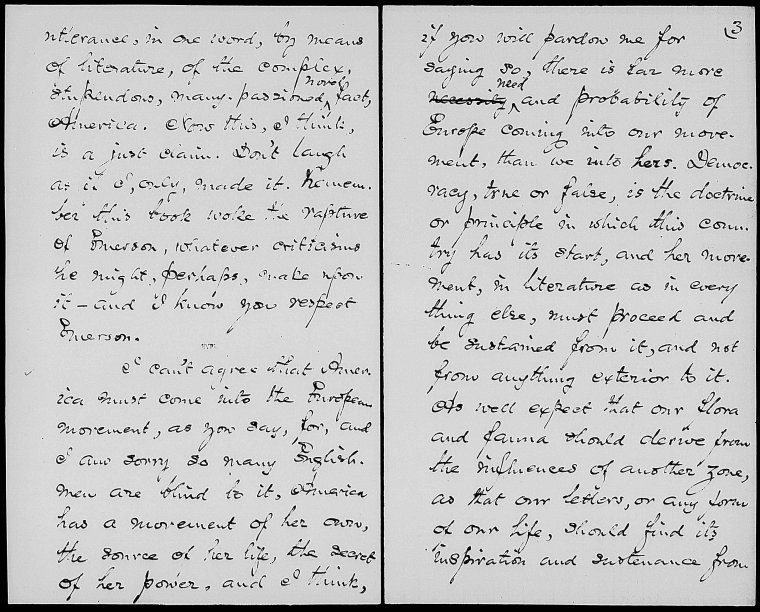 utterance, in one word, by means
of literature, of the complex,
stupendous, many-passioned, novel fact,
America. Now this, I think,
is a just claim. Don't laugh
as if I, only, made it. Remem-
ber this book woke the rapture
of Emerson, whatever criticisms
he might, perhaps, make upon
it – and I know you respect
Emerson.
I can't agree that Amer-
ica must come into the European
movement, as you say, for, and
I am sorry so many English-
men are blind to it, America
has a movement of her own,
the source of her life, the secret
of her power, and I think,
3
if you will pardon me for
saying so, there is far more
necessity need and probability of
Europe coming into our move-
ment, than we into hers. Democ-
racy, true or false, is the doctrine
or principle in which this coun-
try has its start, and her move-
ment, in literature as in every
thing else, must proceed and
be sustained from it, and not
from anything exterior to it.
As well expect that our flora
and fauna should derive from
the influences of another zone,
as that our letters, or any form
of our life, should find its
inspiration and sustenance from